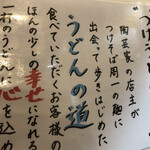 つけそば
陶芸家の店主が
つけそば周一の麺に
出会って歩きはじめた
うどんの道
食べていただくお客様の
ほんの少しの幸せになれる
一杯のうどんに心を込め